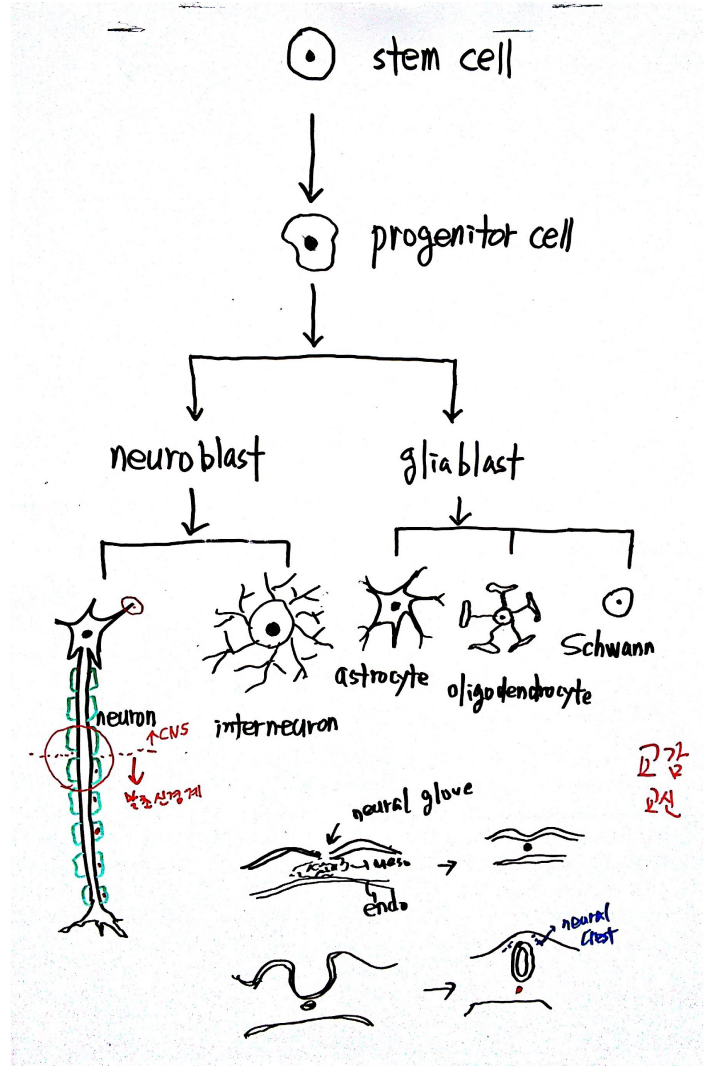 stem cell
progenitor cell
neuroblast
gliablast
neuron
interneuron
astrocyte
oligodendrocyte
Schwann
↑CNS
말초신경계
교감
교신
neural glove
meso
endo
neural
crest